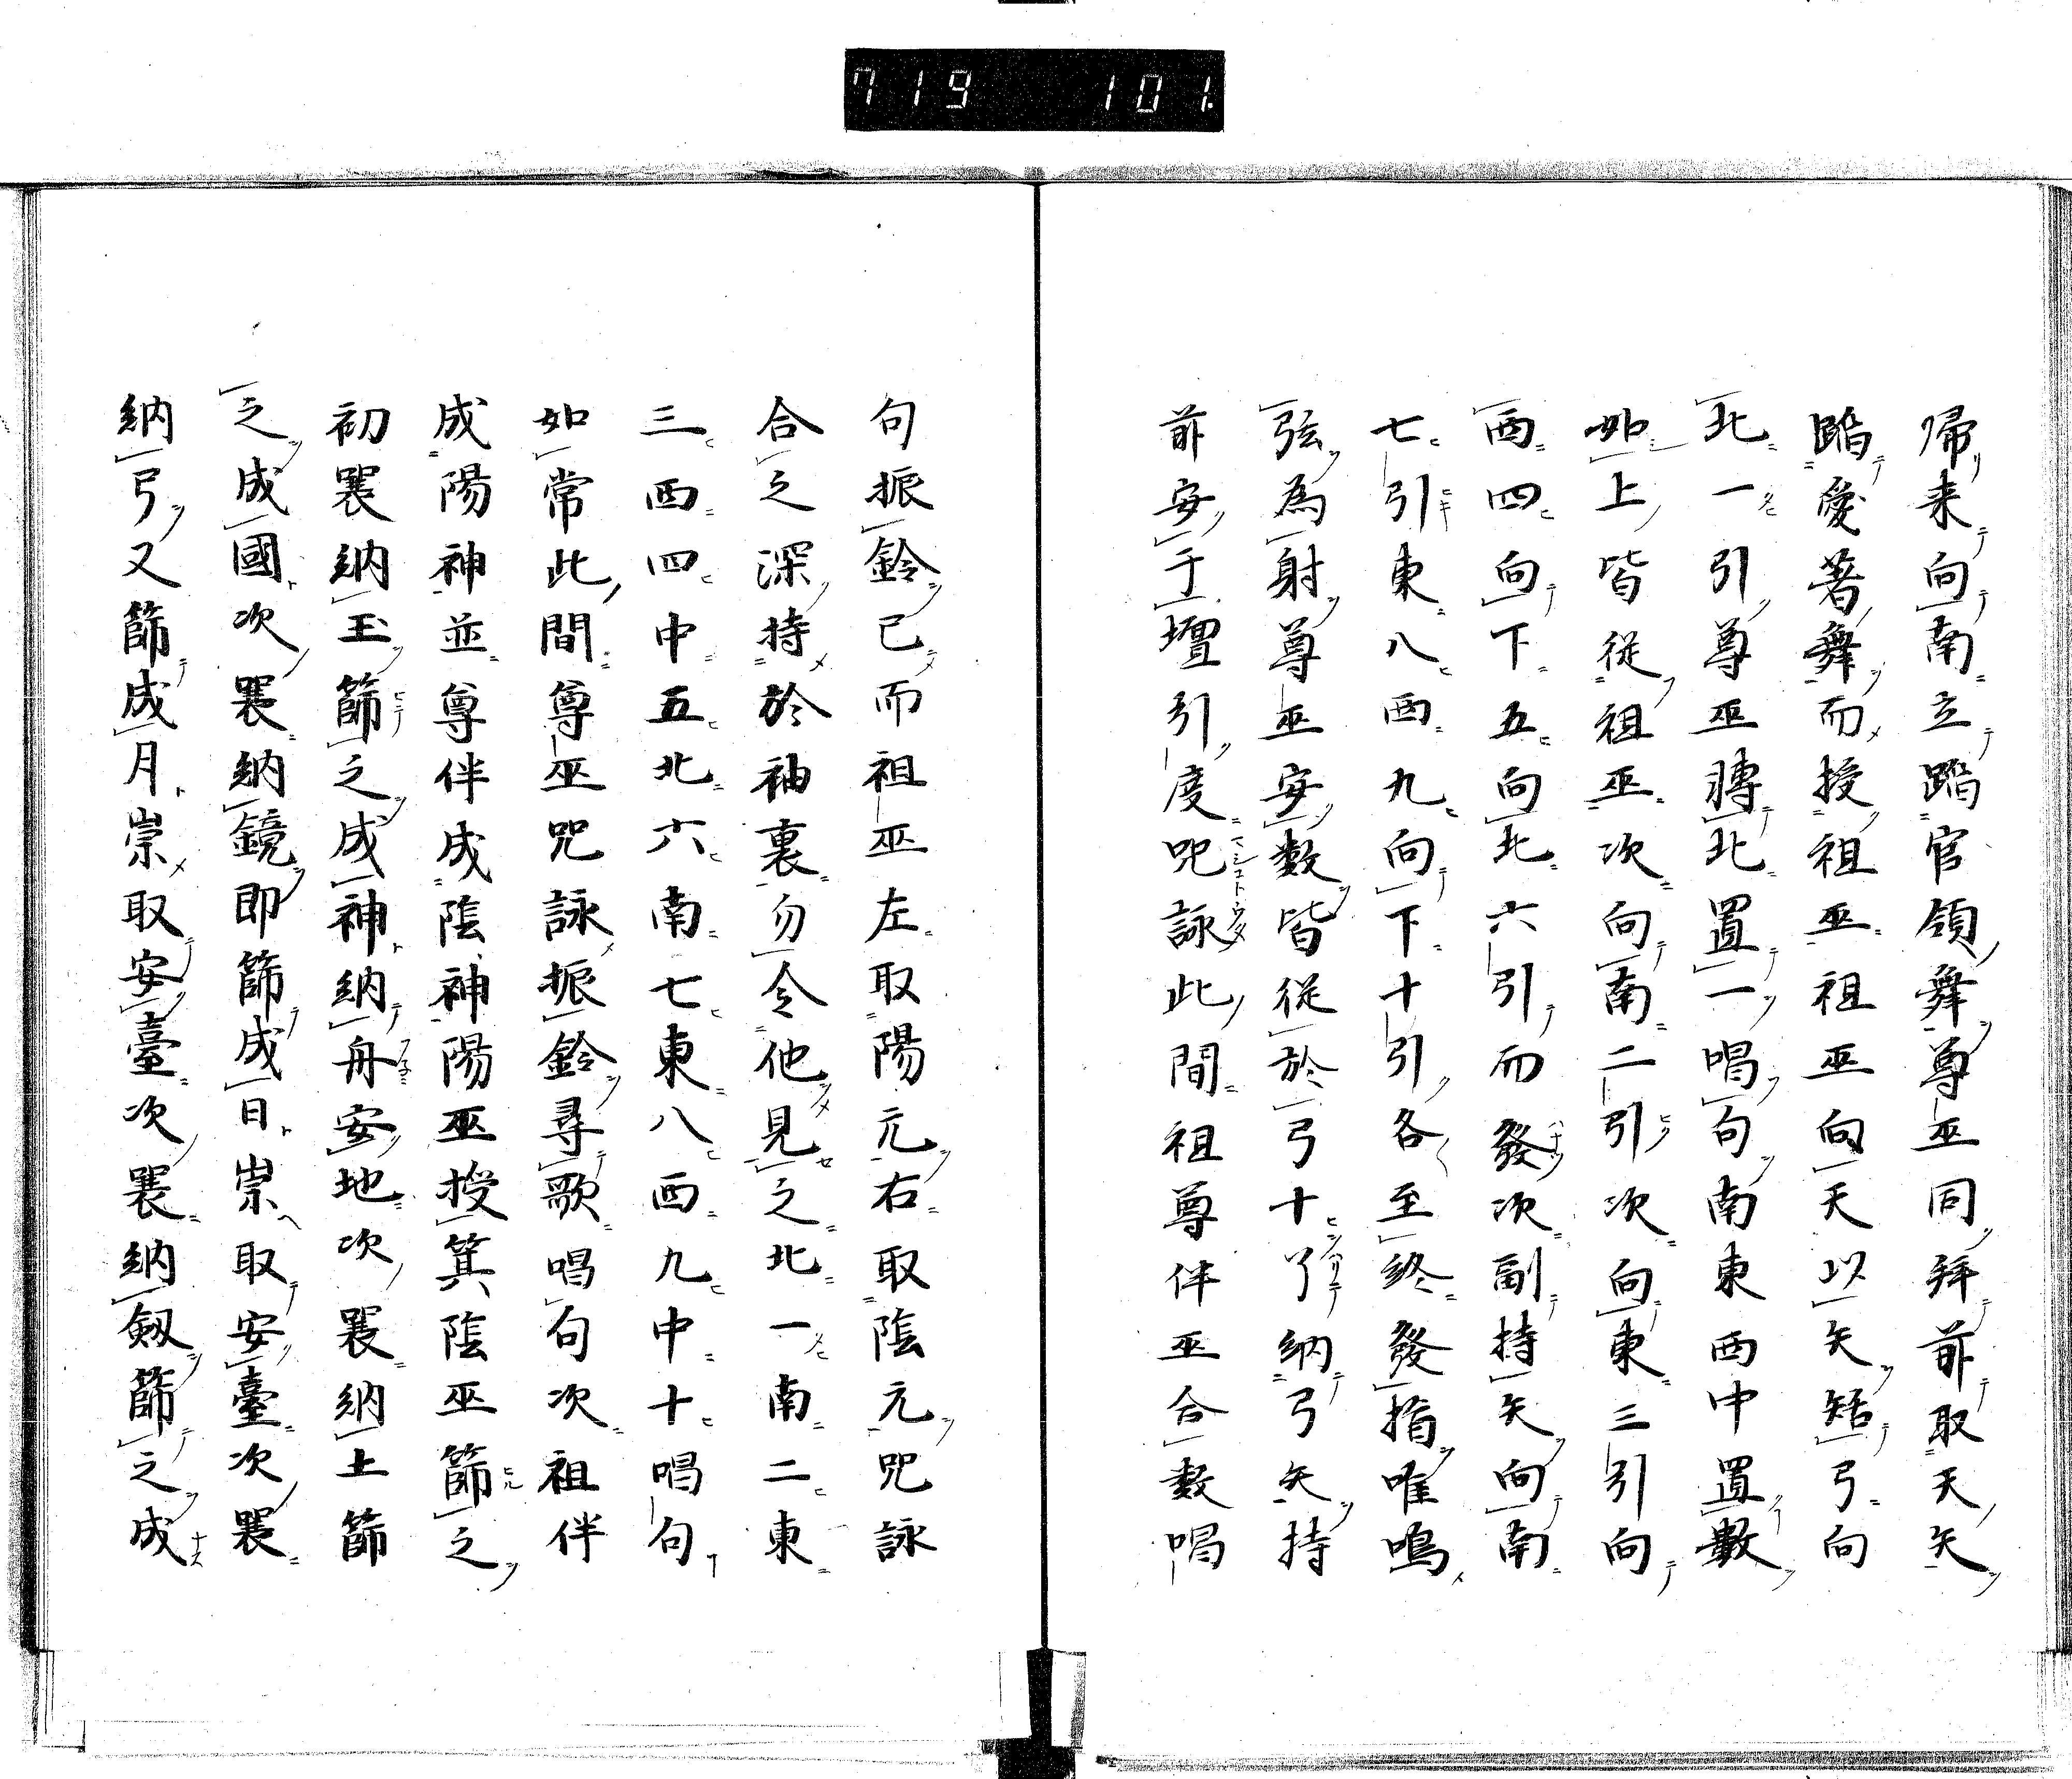 719 101.
帰来向南立蹈官領舞尊巫同拜前取天矢
蹈愛著舞而授祖巫祖巫向天以矢弓向
北一引尊巫轉北置一唱句南東西中置數
如上皆從祖巫次向南二引次向東三引向
西四向下五向北六引而發次副持矢向南
七引東八西九向下十引各至終發指唯鳴
弦為射尊巫安數皆從於弓十了納弓矢持
前安于壇引度咒詠此間祖尊伴巫合數唱
句振鈴已而祖巫左取陽元右取陰元咒詠
合之深持於袖裏勿令他見之北一南二東
三西四中五北六南七東八西九中十唱句
如常此間尊巫咒詠振鈴尋歌唱句次祖伴
成陽神並尊伴成陰神陽巫授箕陰巫篩之
初納玉篩之成神納舟安地次納土篩
之成國次納鏡即篩成日崇取安臺次
納弓又篩成月崇取安臺次納劔篩之成